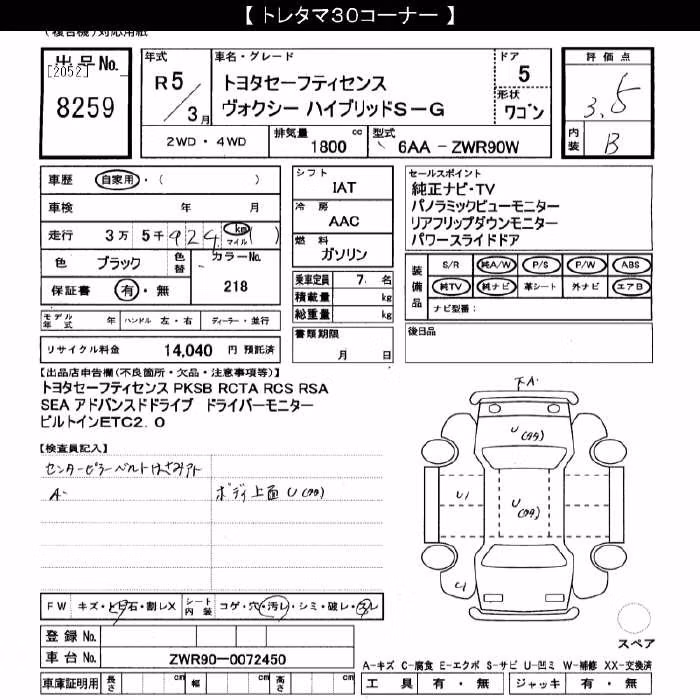 【 トレタマ30コーナー 】
(複合機)対応用紙
出品No.
[2052]
8259
年式
R5
3月
車名・グレード
トヨタセーフティセンス
ヴォクシー ハイブリッドS-G
ドア
5
形状
ワゴン
評価点
3.5
内装
B
2WD・4WD
排気量
1800 cc
型式
6AA - ZWR90W
車歴 自家用・( )
車検 年 月
走行 3万 5千924 km マイル ( )
色 ブラック
色替
カラーNo.
218
保証書 有・無
モデル年式 年 ハンドル 左・右 ディーラー・並行
リサイクル料金 14,040 円 預託済
シフト
IAT
冷房
AAC
燃料
ガソリン
乗車定員 7 名
積載量 kg
総重量 kg
書類期限
月 日
セールスポイント
純正ナビ・TV
パノラミックビューモニター
リアフリップダウンモニター
パワースライドドア
装備品
S/R 純A/W P/S P/W ABS
純TV 純ナビ 革シート 外ナビ エアB
ナビ型番:
後日品
【出品店申告欄(不良箇所・欠品・注意事項等)】
トヨタセーフティセンス PKSB RCTA RCS RSA
SEA アドバンスドドライブ ドライバーモニター
ビルトインETC2.0
【検査員記入】
センターピラーベルトはさみアト
A-
ボディ上面 U(クク)
下A
U(クク)
U1
U(クク)
FW キズ・トビ石・割レX
シート内装 コゲ・穴・汚レ・シミ・破レ・スレ
登録No.
車台No. ZWR90-0072450
車庫証明用 長さ cm 幅 cm 高さ cm
スペア
A-キズ C-腐食 E-エクボ S-サビ U-凹ミ W-補修 XX-交換済
工具 有・無 ジャッキ 有・無